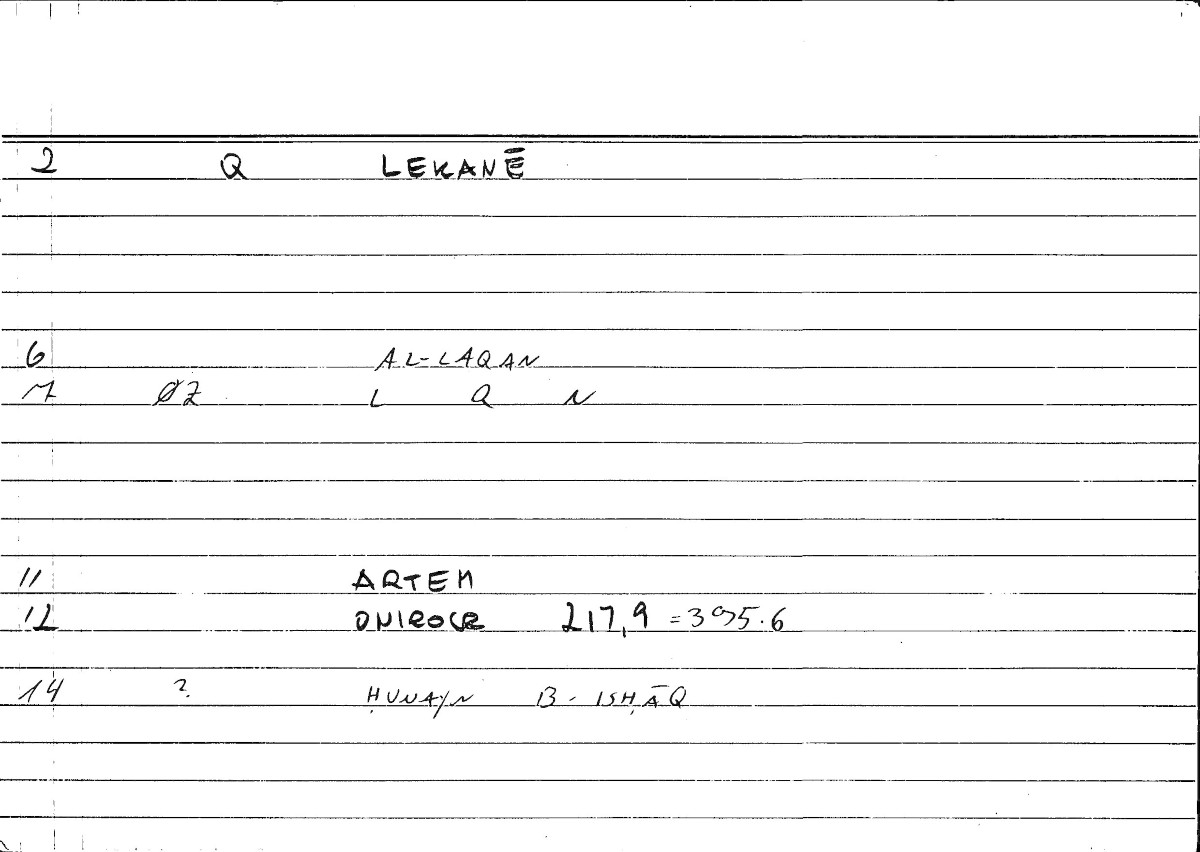 2 Q LEKANĒ
6 AL-LAQAN
7 ØZ L Q N
11 ARTEM
12 ONIROCR 217,9 = 395.6
14 ? ḤUNAYN B. ISḤĀQ